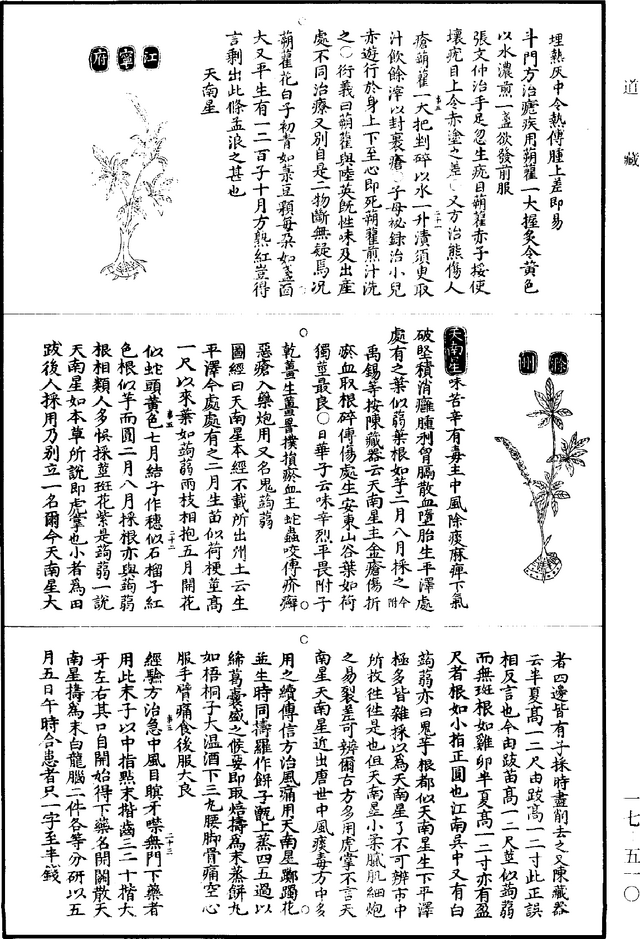 道藏
埋熱灰中令熱傅腫上差即易
斗門方治瘧疾用蒴藋一大握炙令黃色
以水濃煎一盞欲發前服
張文仲治手足忽生疣目蒴藋赤子挼使
壞疣目上令赤塗之差○又方治熊傷人
瘡蒴藋一大把剉碎以水一升漬須臾取
汁飲餘滓以封裹瘡○子母祕錄治小兒
赤遊行於身上下至心即死蒴藋煎汁洗
之○衍義曰蒴藋與陸英旣性味及出産
處不同治療又別自是二物斷無疑焉况
蒴藋花白子初青如菉豆顆每朶如盞面
大又平生有一二百子十月方熟紅豈得
言剩出此條孟浪之甚也
天南星
江寧府
滁州
天南星味苦辛有毒主中風除痰麻痺下氣
破堅積消癰腫利胷膈散血墮胎生平澤處
處有之葉似蒻葉根如芋二月八月採之今附
禹錫等按陳藏器云天南星主金瘡傷折
瘀血取根碎傅傷處生安東山谷葉如荷
獨莖最良○日華子云味辛烈平畏附子
乾薑生薑罯撲損瘀血主蛇蟲咬傅疥癬
惡瘡入藥炮用又名鬼蒟蒻
圖經曰天南星本經不載所出州土云生
平澤今處處有之二月生苗似荷梗莖高
一尺以來葉如蒟蒻兩枝相抱五月開花
似蛇頭黃色七月結子作穗似石榴子紅
色根似芋而圓二月八月採根亦與蒟蒻
根相類人多悞採莖斑花紫是蒟蒻一說
天南星如本草所說即虎掌也小者爲由
跋後人採用乃別立一名爾今天南星大
者四邊皆有子採時盡削去之又陳藏器
云半夏高一二尺由跋高一二寸此正誤
相反言也今由跋苗高一二尺莖似蒟蒻
而無斑根如雞卵半夏高一二寸亦有盈
尺者根如小指正圓也江南吳中又有白
蒟蒻亦曰鬼芋根都似天南星生下平澤
極多皆雜採以爲天南星了不可辨市中
所收往往是也但天南星小柔膩肌細炮
之易裂差可辨爾古方多用虎掌不言天
南星天南星近出唐世中風痰毒方中多
用之續傳信方治風痛用天南星躑躅花
並生時同擣羅作餅子甑上蒸四五過以
絺葛囊盛之候要即取焙擣爲末蒸餅丸
如梧桐子大温酒下三丸腰脚骨痛空心
服手臂痛食後服大良
經驗方治急中風目瞑牙噤無門下藥者
用此末子以中指點末揩齒三二十揩大
牙左右其口自開始得下藥名開關散天
南星擣爲末白龍腦二件各等分研以五
月五日午時合患者只一字至半錢
一七-五一〇